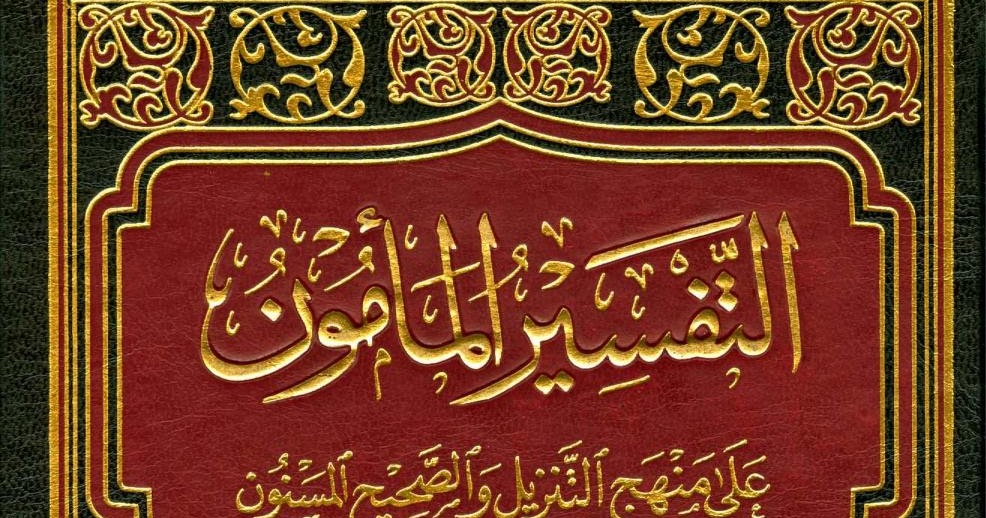 التَّفْسِيْرُ المَأْمُوْنُ
عَلَىٰ مَنْهَجِ ٱلتَّنْزِيلِ وَٱلصَّحِيْحِ ٱلمَسْنُوْنِ